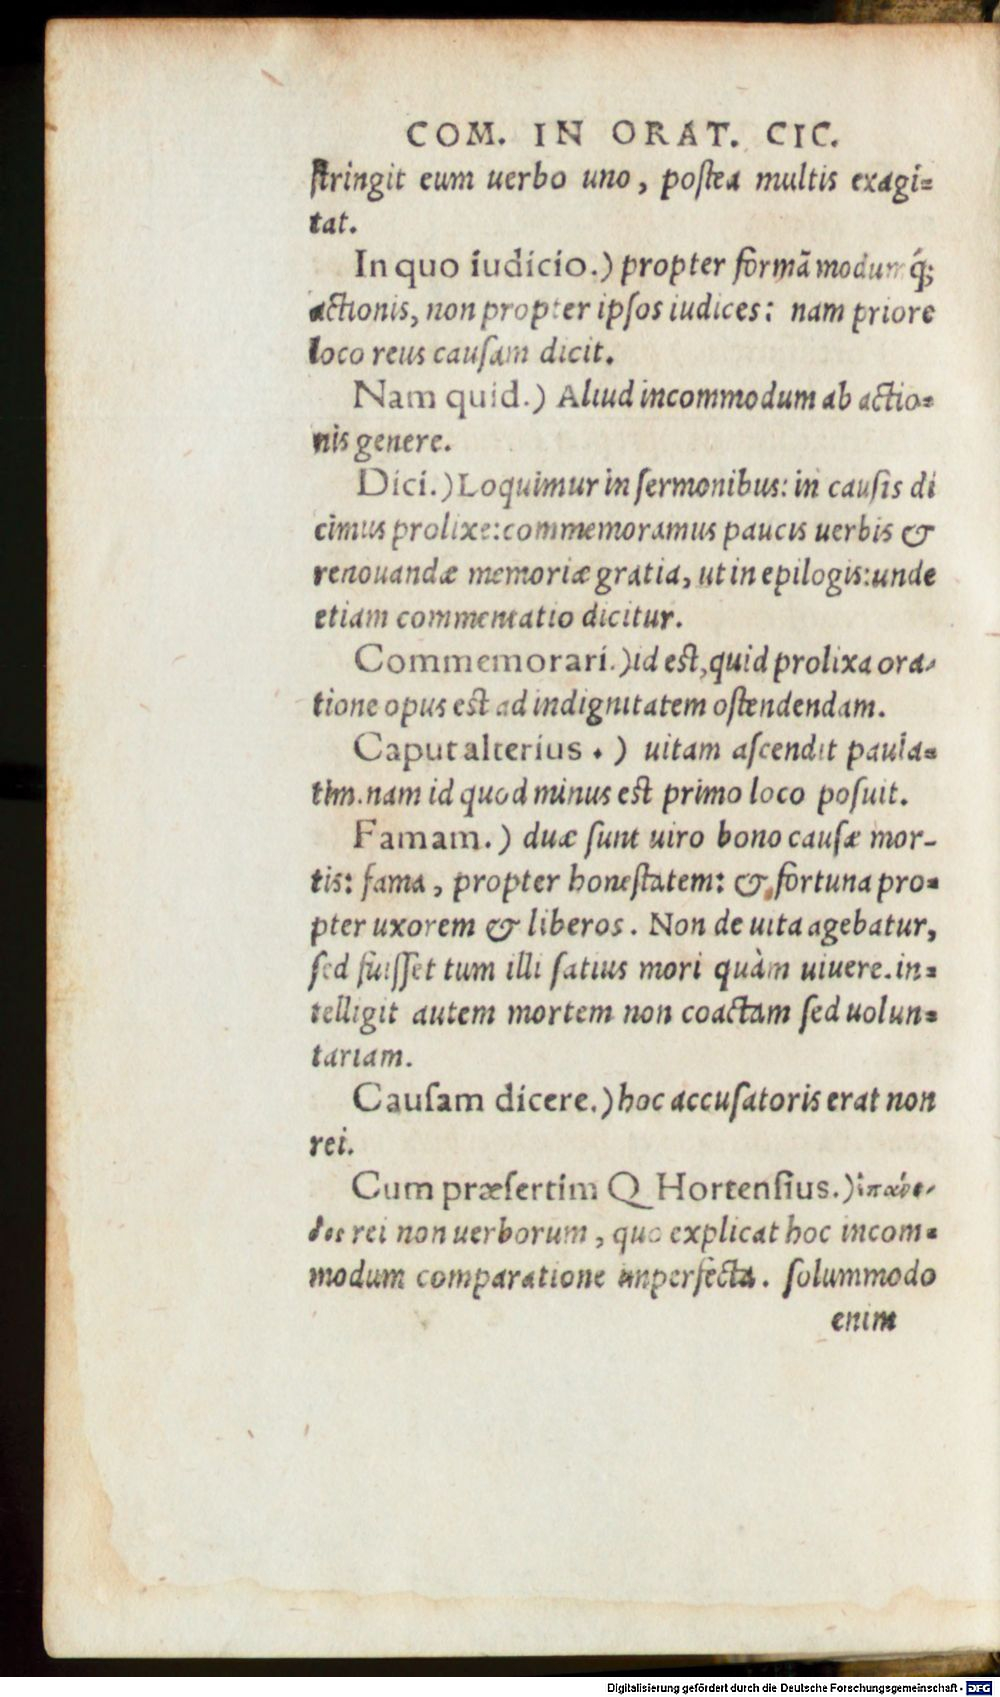 COM. IN ORAT. CIC.
ſtringit eum uerbo uno, poſtea multis exagi=
tat.
In quo iudicio.) propter formã modum q́;
actionis, non propter ipſos iudices: nam priore
loco reus cauſam dicit.
Nam quid.) Aliud incommodum ab actio=
nis genere.
Dici.) Loquimur in ſermonibus: in cauſis di
cimus prolixe: commemoramus paucis uerbis &
renouandæ memoriæ gratia, ut in epilogis: unde
etiam commentatio dicitur.
Commemorari.) id est, quid prolixa ora-
tione opus est ad indignitatem oſtendendam.
Caput alterius.) uitam aſcendit paula=
tim. nam id quod minus est primo loco poſuit.
Famam.) duæ ſunt uiro bono cauſæ mor-
tis: fama, propter honeſtatem: & fortuna pro=
pter uxorem & liberos. Non de uita agebatur,
ſed fuiſſet tum illi ſatius mori quàm uiuere. in=
telligit autem mortem non coactam ſed uolun=
tariam.
Cauſam dicere.) hoc accuſatoris erat non
rei.
Cum præſertim Q Hortenſius.)
rei non uerborum, quo explicat hoc incom=
modum comparatione imperfecta. ſolummodo
enim
Digitalisierung gefördert durch die Deutsche Forschungsgemeinschaft - DFG